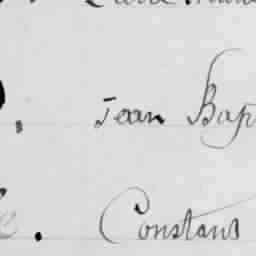 . Jean Bap
e. Constans